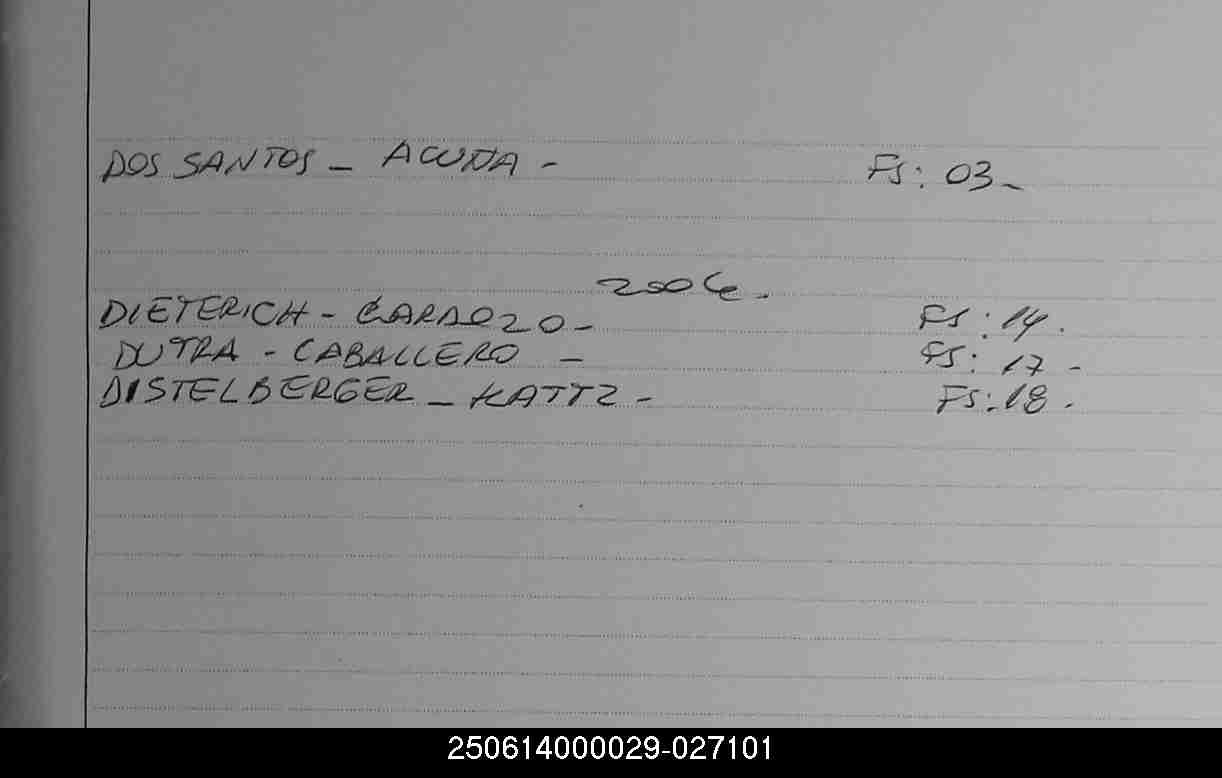 DOS SANTOS - ACUÑA - FS: 03 -
2006.
DIETERICH - CARDOZO - FS: 14.
DUTRA - CABALLERO - FS: 17 -
DISTELBERGER - KATTZ - FS: 18.
250614000029-027101